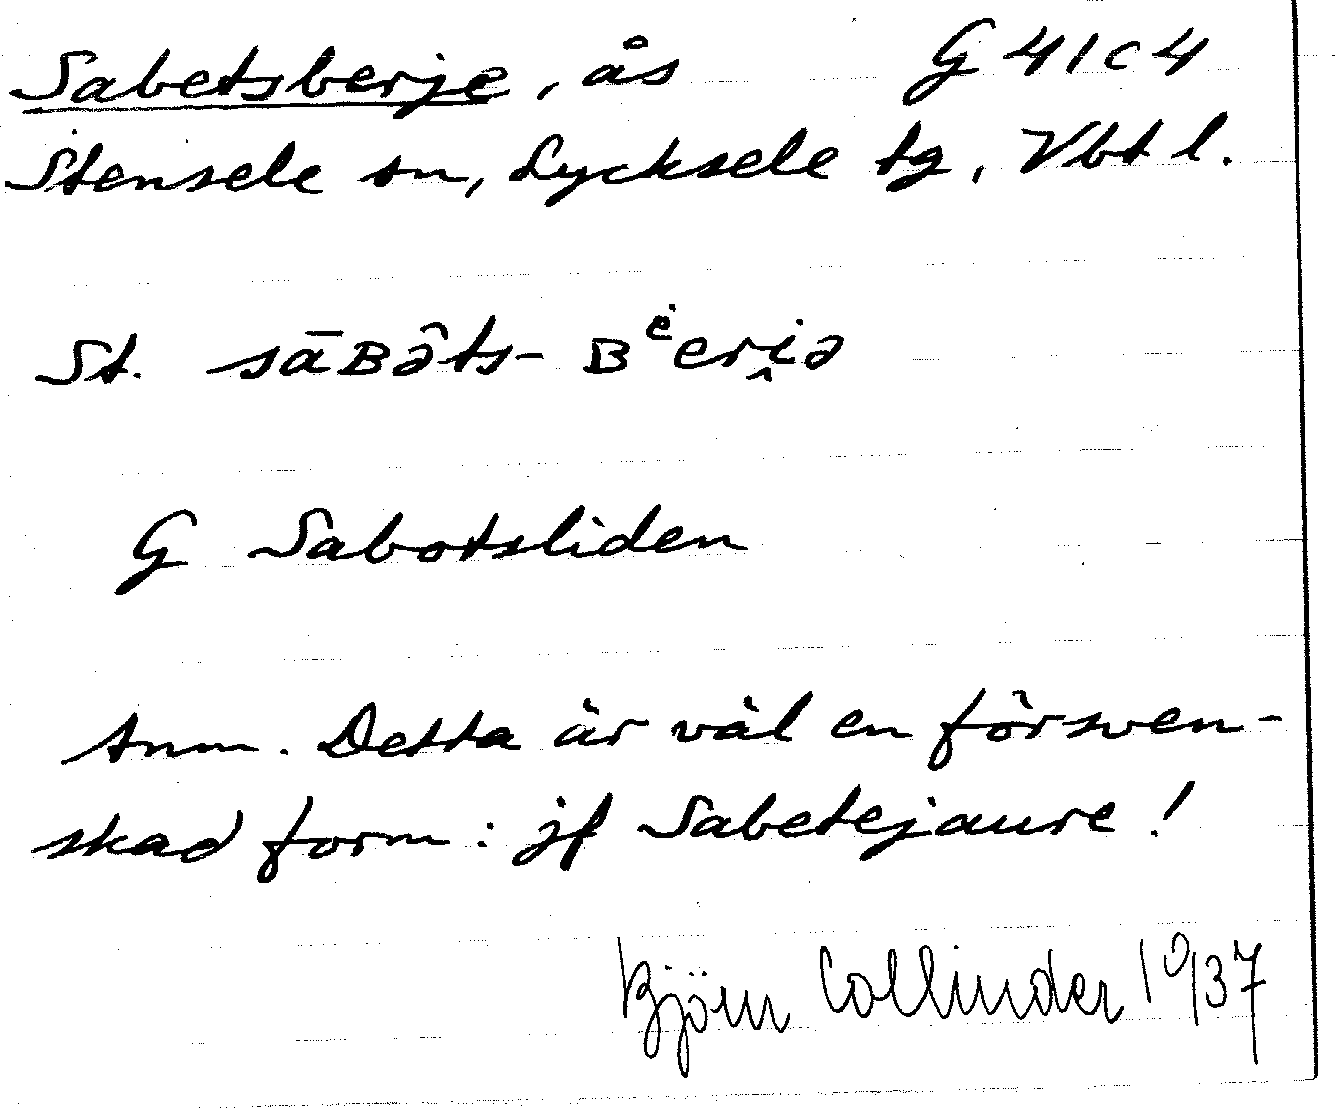 Sabetsberje, ås G 41 c 4
Stensele sn, Lycksele tg, Vbt l.
St. sāʙə̑ts- ʙᵉ̇eri̯ə
G Sabotsliden
Anm. Detta är väl en försven-
skad form: jf Sabetejaure!
Björn Collinder 10/37